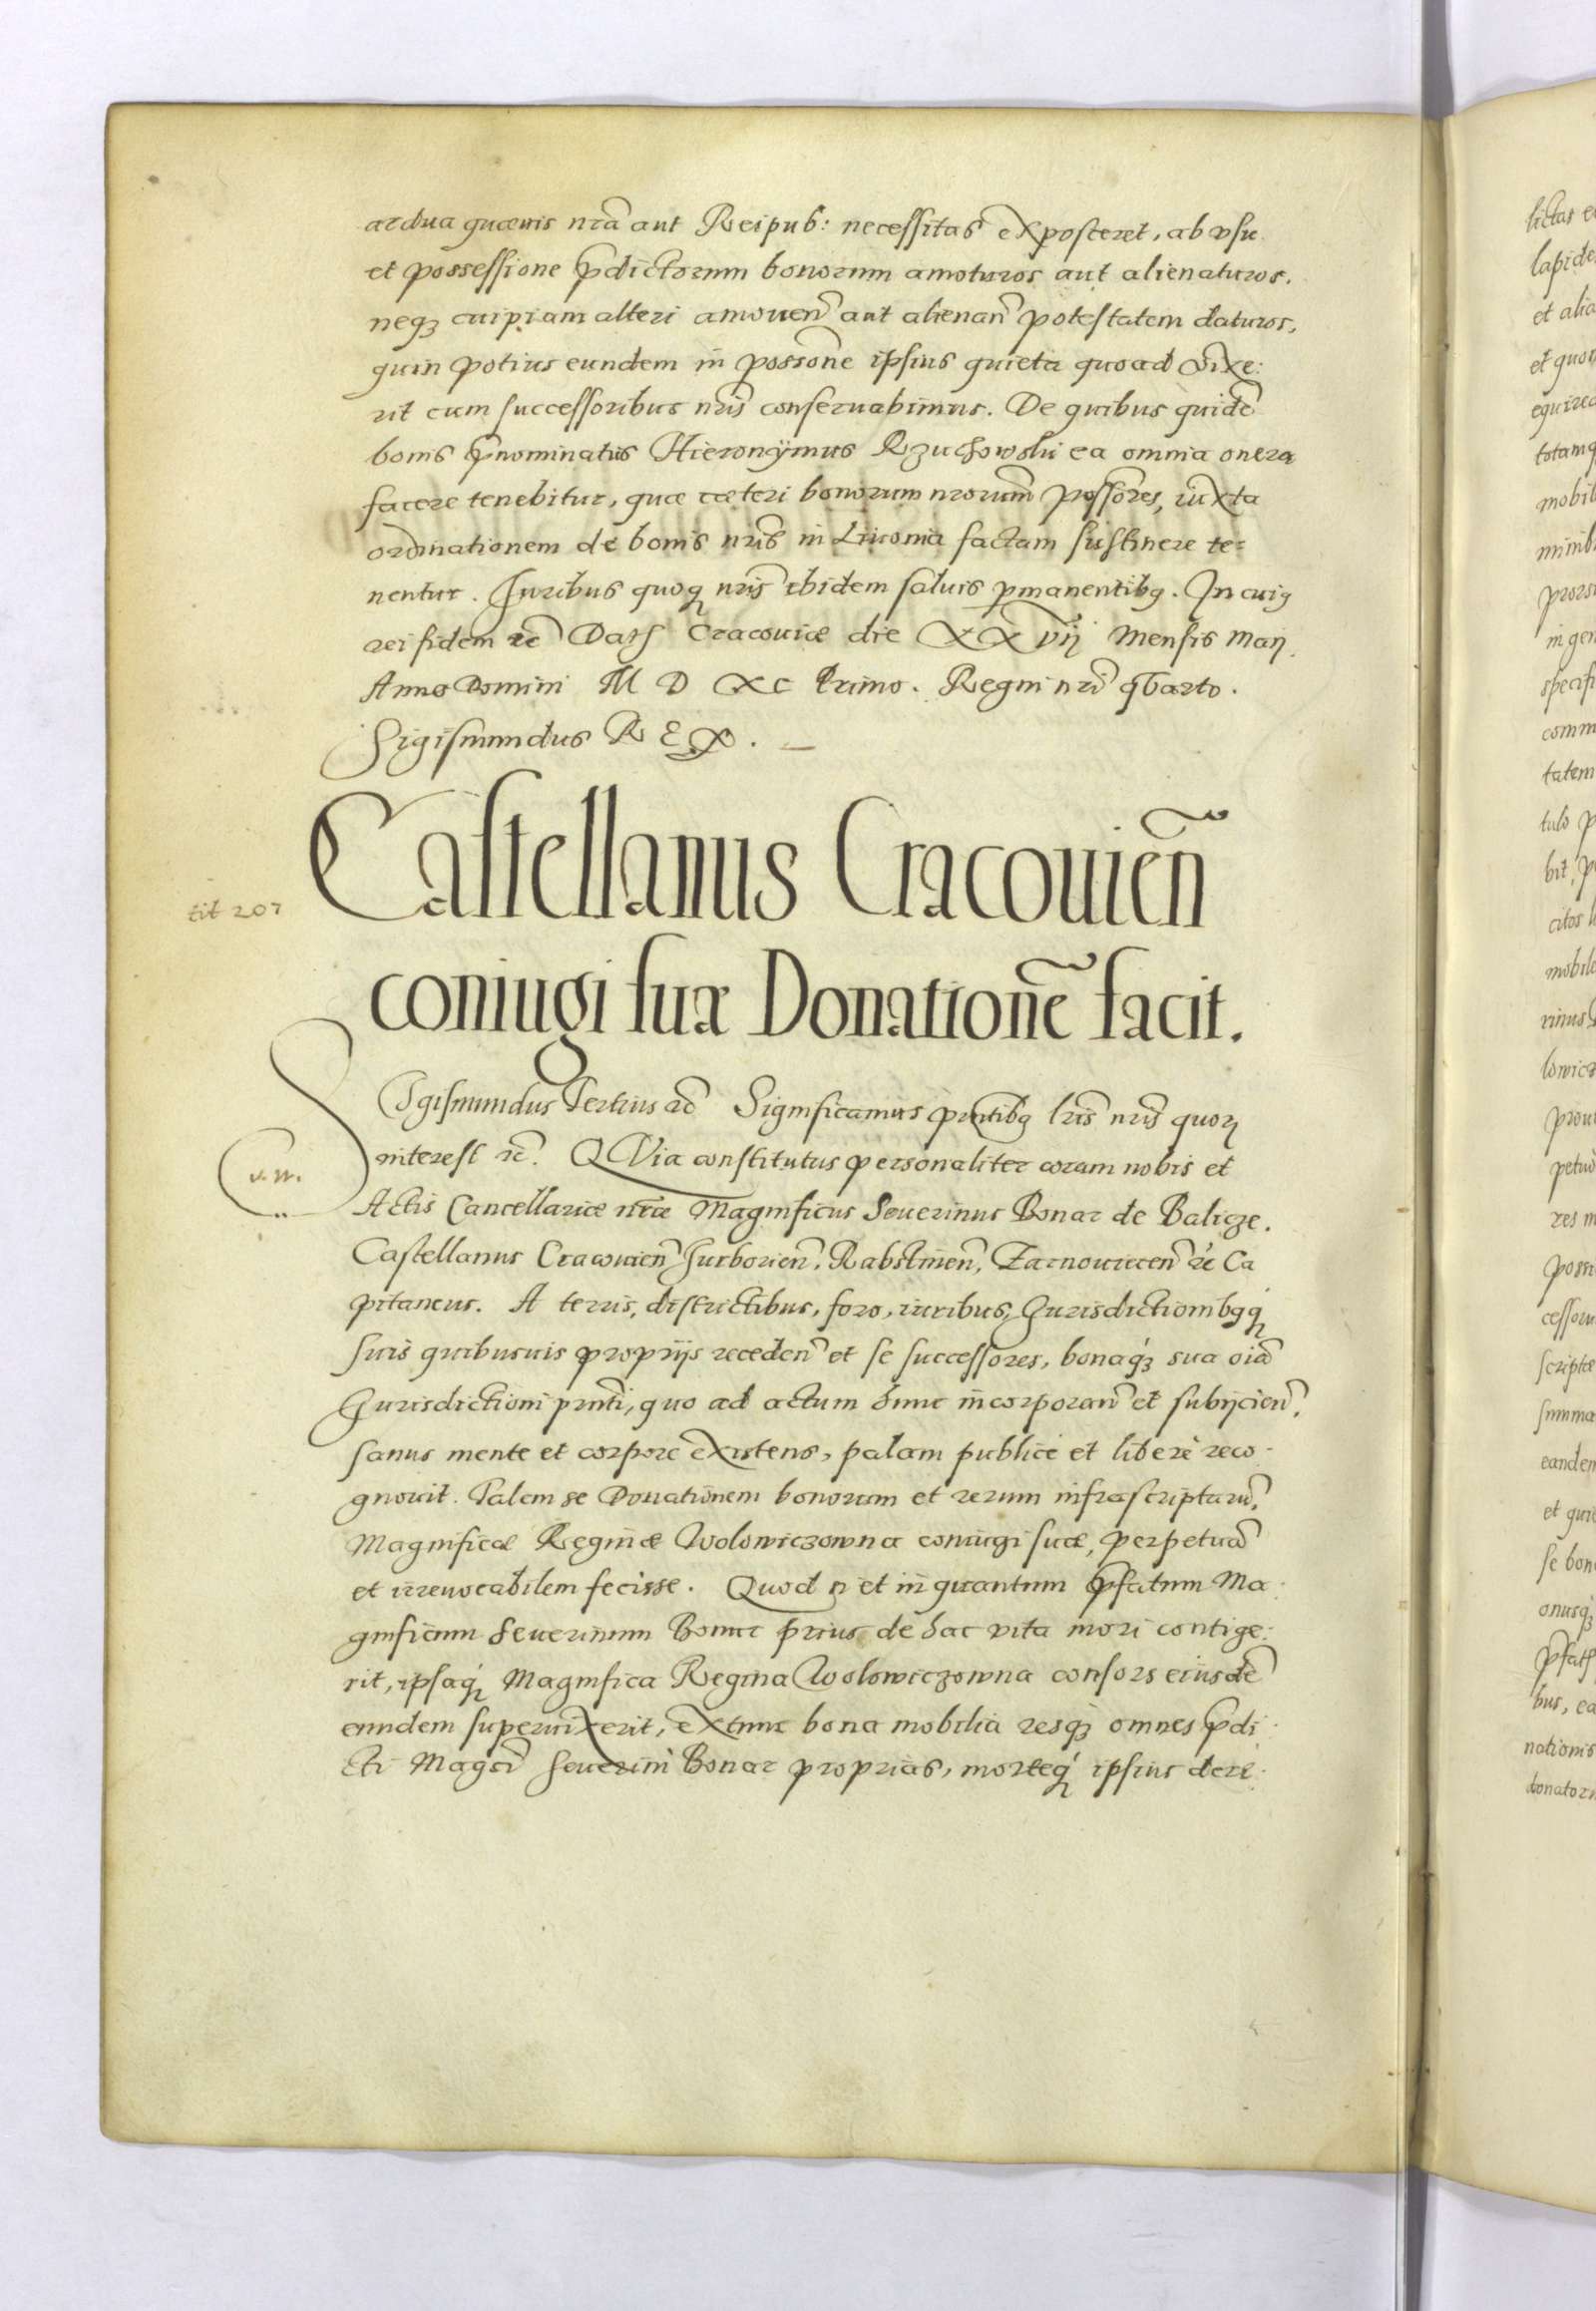 ardua quævis nrã aut Reipub: necessitas exposceret, ab vsu
et possessione p̃dictorum bonorum amoturos aut alienaturos.
neq3 cuipiam alteri amouen̄ aut alienan̄ potestatem daturos,
quin potius eundem in possoñe ipsius quieta quoad vixe:
rit cum successoribus nris̃ conseruabimus. De quibus quidẽ
bonis p̃nominatus Hieronÿmus Rzuchowski ea omnia onera
facere tenebitur, quæ cæteri bonorum nrorum̃ possores̃, iuxta
ordinationem de bonis nris̃ in Liuonia factam sustinere te=
nentur. Iuribus quoq3 nris̃ ibidem saluis pmanentibq. In cuiq
rei fidem ꝛc̃ Datʃ Cracouiæ die XXvij Mensis Maij.
Anno Domini M D XC Primo. Regni nrĩ qVarto.
Sigismundus R E X. —
Castellanus Cracouien̄
coniugi suæ Donationẽ facit.
tit 207
SIgismundus Tertius ꝛc̃ Significamus pñtibq lris̃ nris̃ quoꝝ
interest ꝛc̃. QVia constitutus personaliter coram nobis et
v. w.
Actis Cancellariæ nræ̃ Magnificus Seuerinus Bonar de Balicze.
Castellanus Cracouien̄ Surborien̄, Rabstinen̄, Zarnouiecen̄ ꝛc̃ Ca
pitaneus. A terris, districtibus, foro, iuribus, Iurisdictionibqq3
suis quibusuis proprijs receden̄ et se successores, bonaq́3 sua oiã
Iurisdictioni pñti, quo ad actum hunc incorporan̄ et subijcien̄,
sanus mente et corpore existens, palam publicè et liberè reco-
gnouit. Palam se Donationem bonorum et rerum infrascriptarũ,
Magnificæ Reginæ Wolowiczowna coniugi suæ, perpetuã
et irreuocabilem fecisse. Quod si et in quantum p̃fatum Ma-
gnificum Seuerinum Bonar prius de hac vita mori contige:
rit, ipsaq́3 Magnifica Regina Wolowiczowna consors eiusdẽ
eundem superuixerit, extunc bona mobilia resq́3 omnes p̃di-
cti Magcĩ Seuerini Bonar proprias, morteq́3 ipsius dere-